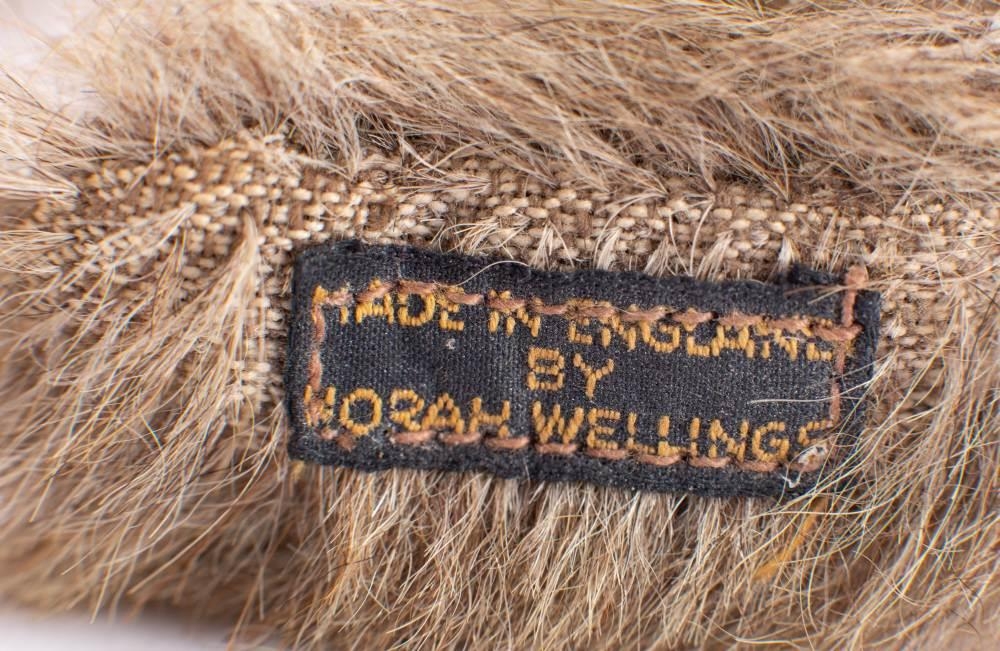 MADE IN ENGLAND
BY
NORAH WELLINGS